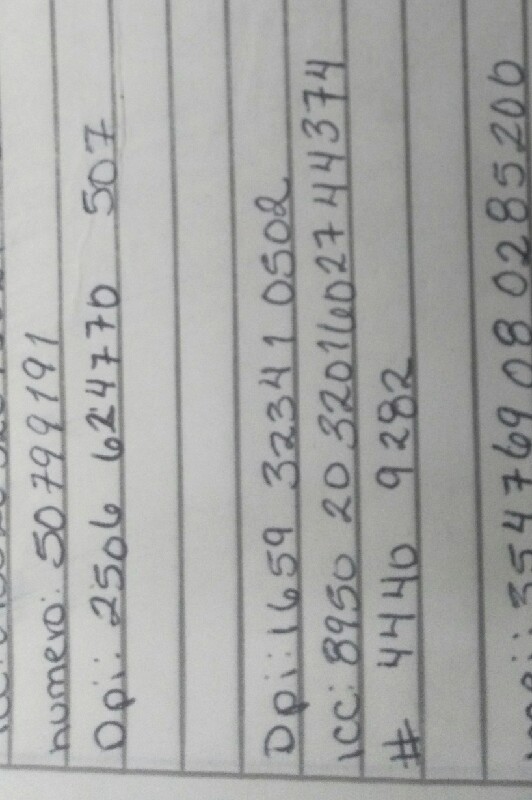 numero: 50799191
Dpi: 2506 624770 507
Dpi: 1659 32341 0502
ICC: 8950 20 32016027 44374
# 4440 9282
354769 08 0285206